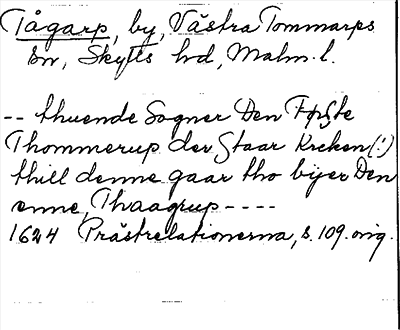 Tågarp, by, Västra Tommarps
sn, Skytts hd, Malm. l.
-- thuende Sogner Den Første
Thommerup der Staar Kreken (!)
thill denne gaar tho bÿer Den
enne, Thaagrup ----
1624 Prästrelationerna, s. 109. orig.